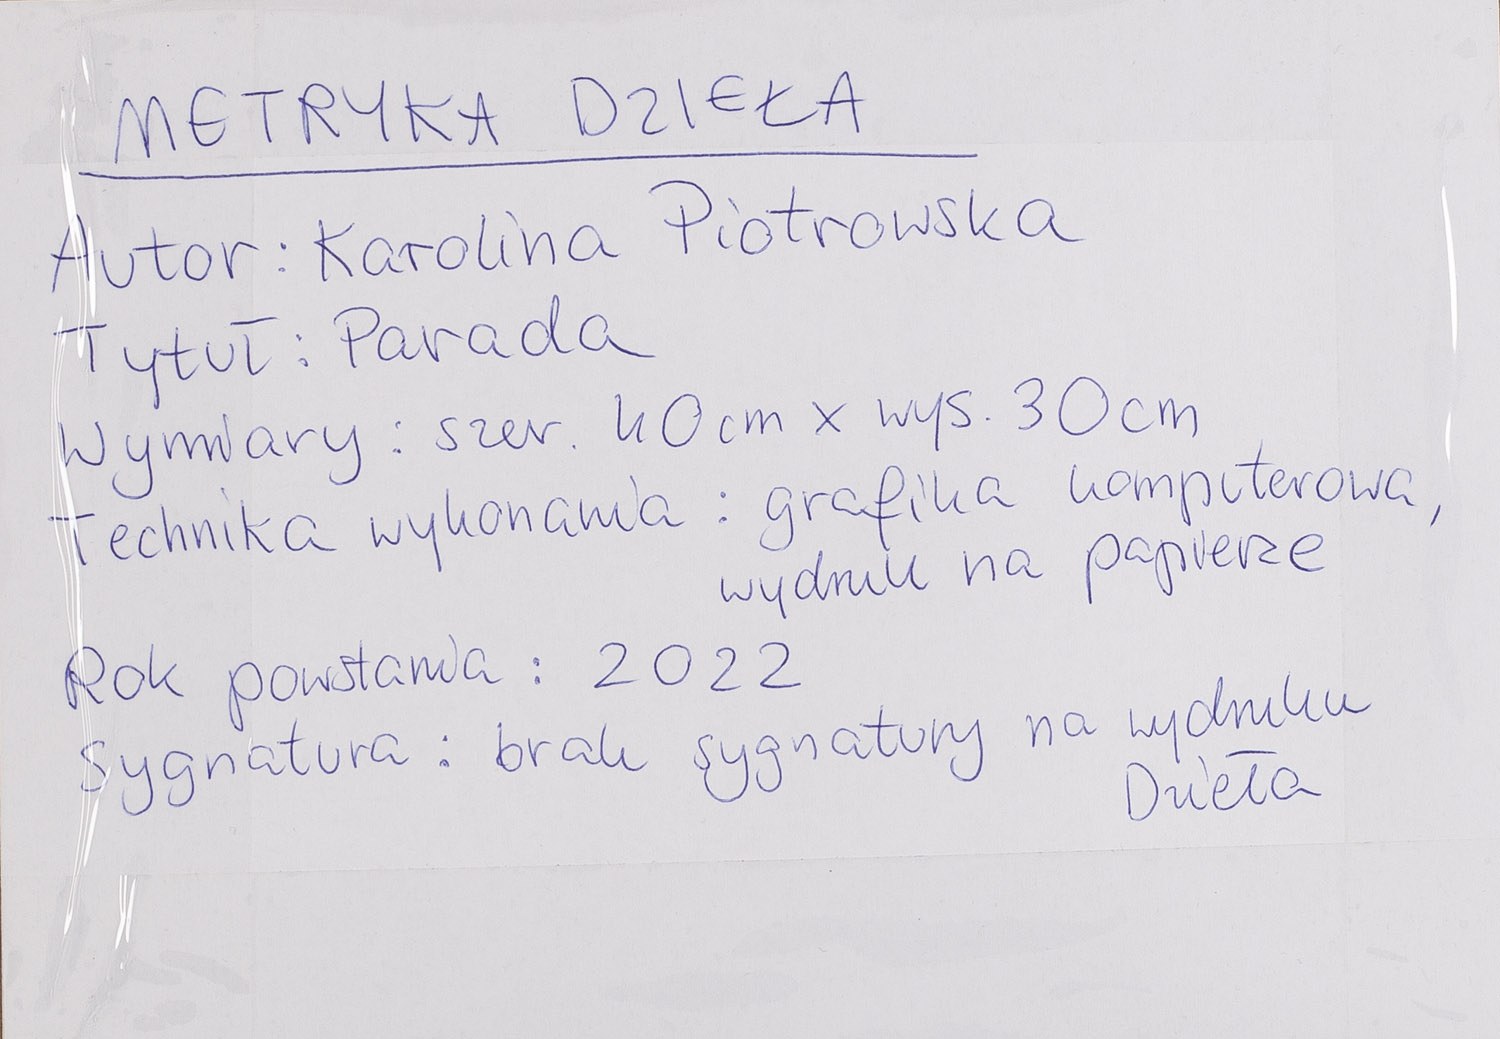 METRYKA DZIEŁA
Autor: Karolina Piotrowska
Tytuł: Parada
Wymiary: szer. 40cm x wys. 30cm
Technika wykonania: grafika komputerowa,
wydruk na papierze
Rok powstania: 2022
Sygnatura: brak sygnatury na wydruku
Dzieła